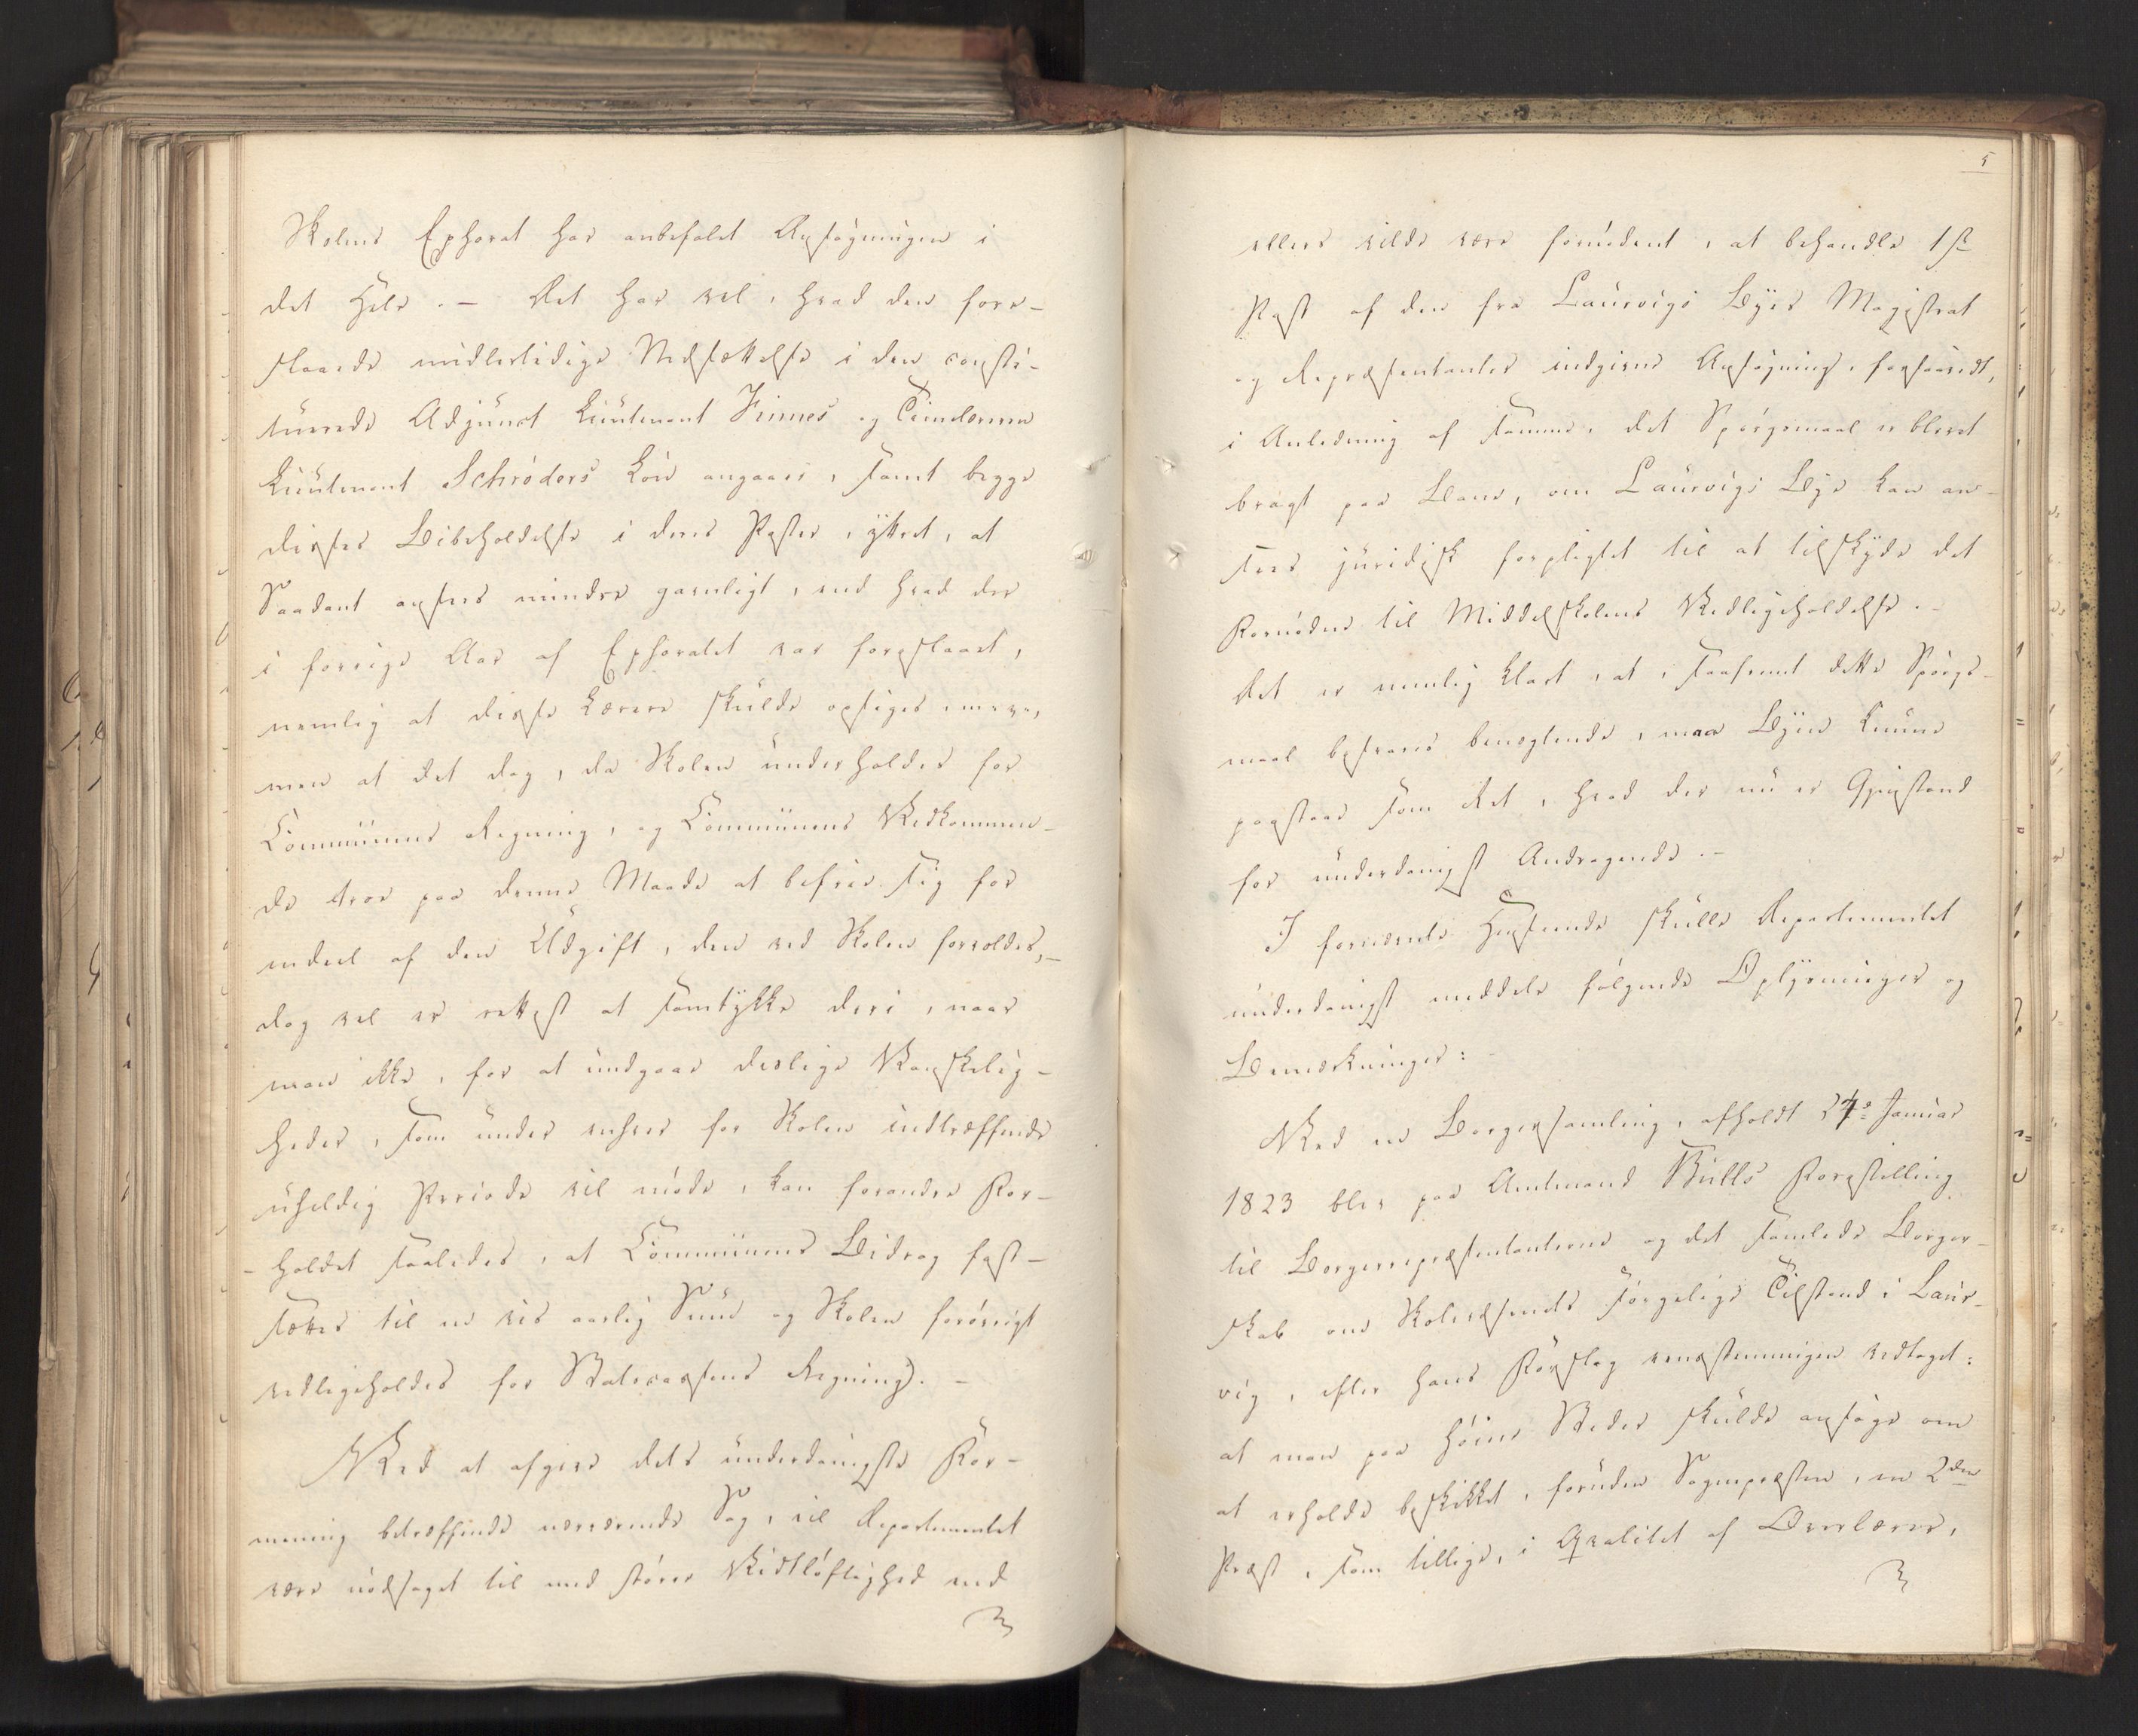 Skolens Ephorat har anbefalet Ansøgningen i
det Hele. – Det har vel, hvad den fore-
slaaede midlertidige Nedsættelse i den consti-
tuerede Adjunct Lieutenant Finnes og Timelærer
Lieutenant Schrøders Løn angaaer, samt begge
disses Beibeholdelse i deres Poster, yttret, at
Saadant ansees mindre gavnligt, end hvad der
i forrige Aar af Ephoratet var foreslaaet,
nemlig at disse Lærere skulde opsiges,
men at det dog, da Skolen underholdes for
Communens Regning, og Communens Vedkommen-
de troe paa denne Maade at befrie sig for
endeel af den Udgift, den ved Skolen forvoldes, –
dog vel er rettest at samtykke deri, naar
man ikke, for at undgaae deslige Vanskelig-
heder, som under enhver for Skolen indtræffende
uheldig Periode vil møde, kan forandre For-
holdet saaledes, at Communens Bidrag fast-
sættes til en vis aarlig Sum og Skolen forøvrigt
vedligeholdes for Statscassens Regning. –
Ved at afgive dets underdanigste For-
mening betræffende nærværende Sag, vil Departementet
være nødsaget til med større Vidtløftighed end
5
ellers vilde være fornødent, at behandle 1ste
Post af den fra Laurvigs Byes Magistrat
og Repræsentanter indgivne Ansøgning, forsaavidt,
i Anledning af samme, det Spørgsmaal er blevet
bragt paa Bane, om Laurvigs Bye kan an-
sees juridisk forpligtet til at tilskyde det
Fornødne til Middelskolens Vedligeholdelse. –
Det er nemlig klart, at, saafremt dette Spørgs-
maal besvares benegtende, maa Byen kunne
paastaae som Ret, hvad der nu er Gjenstand
for underdanigst Andragende. –
I fornævnte Henseende skulle Departementet
underdanigst meddele følgende Oplysninger og
Bemærkninger:
Ved en Borgersamling, afholdt 24de Januar
1823 blev paa Amtmand Bulls Forestilling
til Borgerrepræsentanterne og det samlede Borger-
skab om Skolevæsenets sørgelige Tilstand i Laur-
vig, efter hans Forslag eenstemmigen vedtaget:
at man paa høiere Steder skulde ansøge om
at erholde beskikket, foruden Sognepræsten, en 2den
Præst, som tillige, i Qvalitet af Overlærer,